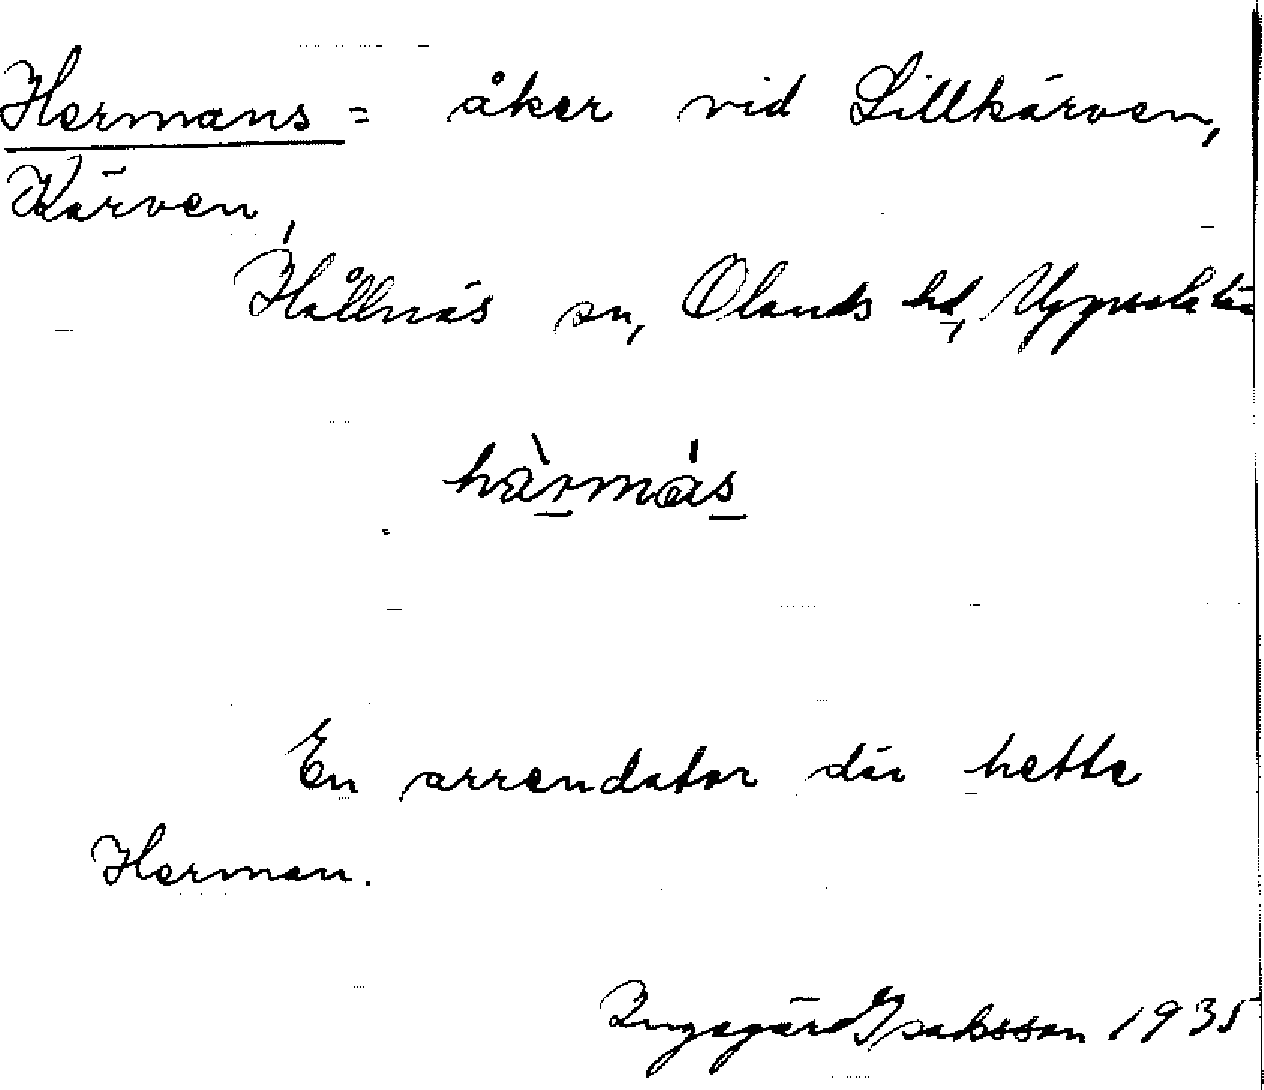 Hermans = åker vid Lillkärven,
Kärven,
Hållnäs sn, Olands hd, Uppsala län
härmäs
En arrendator där hette
Herman.
Ingegärd Isaksson 1935